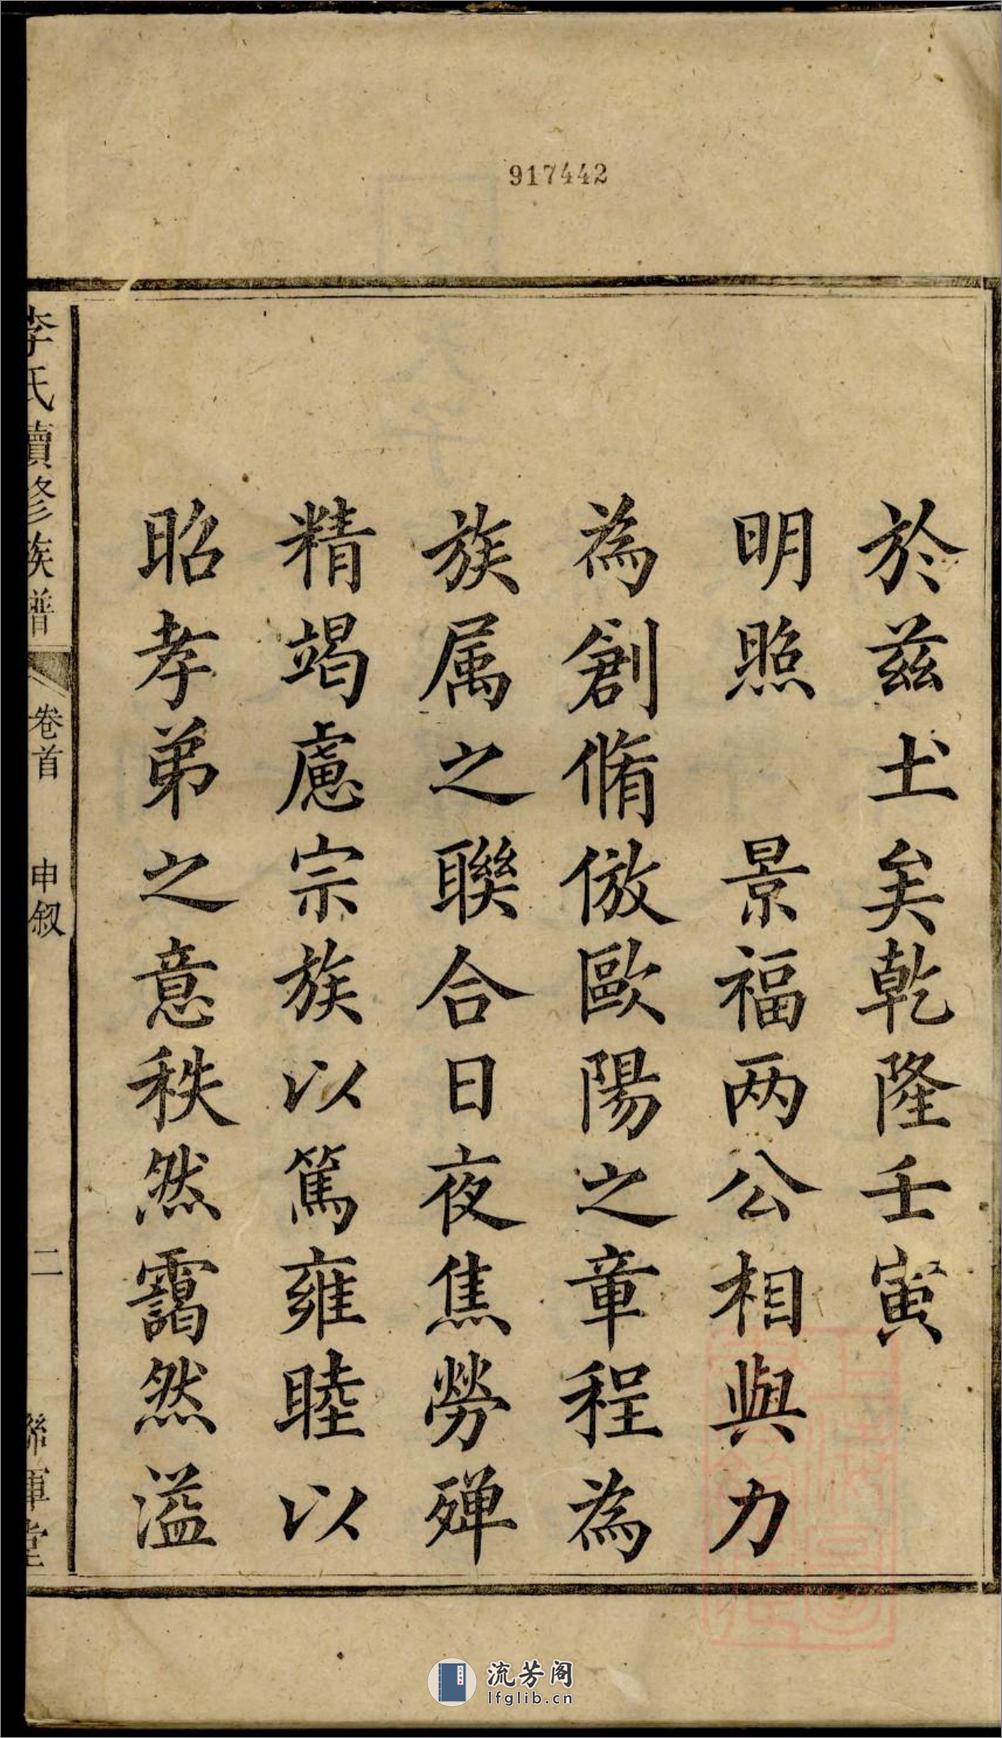 917442
於兹土矣乾隆壬寅
明照　景福两公相與力
為創脩倣歐陽之章程為
族属之聯合日夜焦勞殫
精竭慮宗族以篤雍睦以
昭孝弟之意秩然靄然溢
李氏續修族譜　卷首　申叙　二　聯輝堂
流芳阁
lfglib.cn